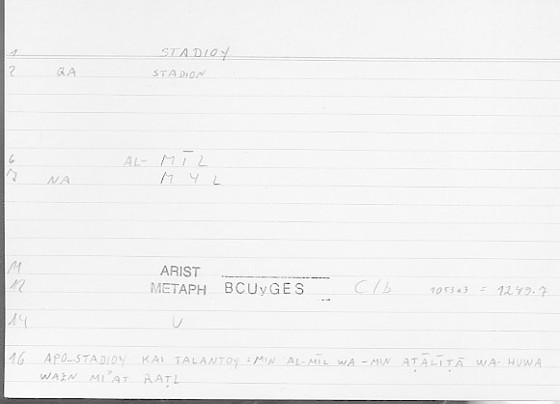 1 STADIOY
2 QA STADION
6 AL- MĪL
7 NA MYL
11 ARIST
12 METAPH BCUyGES C/b 1053a3 = 1249.7
14 U
16 APO_STADIOY KAI TALANTOY : MIN AL-MĪL WA-MIN AṬĀLĪṬĀ WA-HUWA
WAZN MI'AT RAṬL